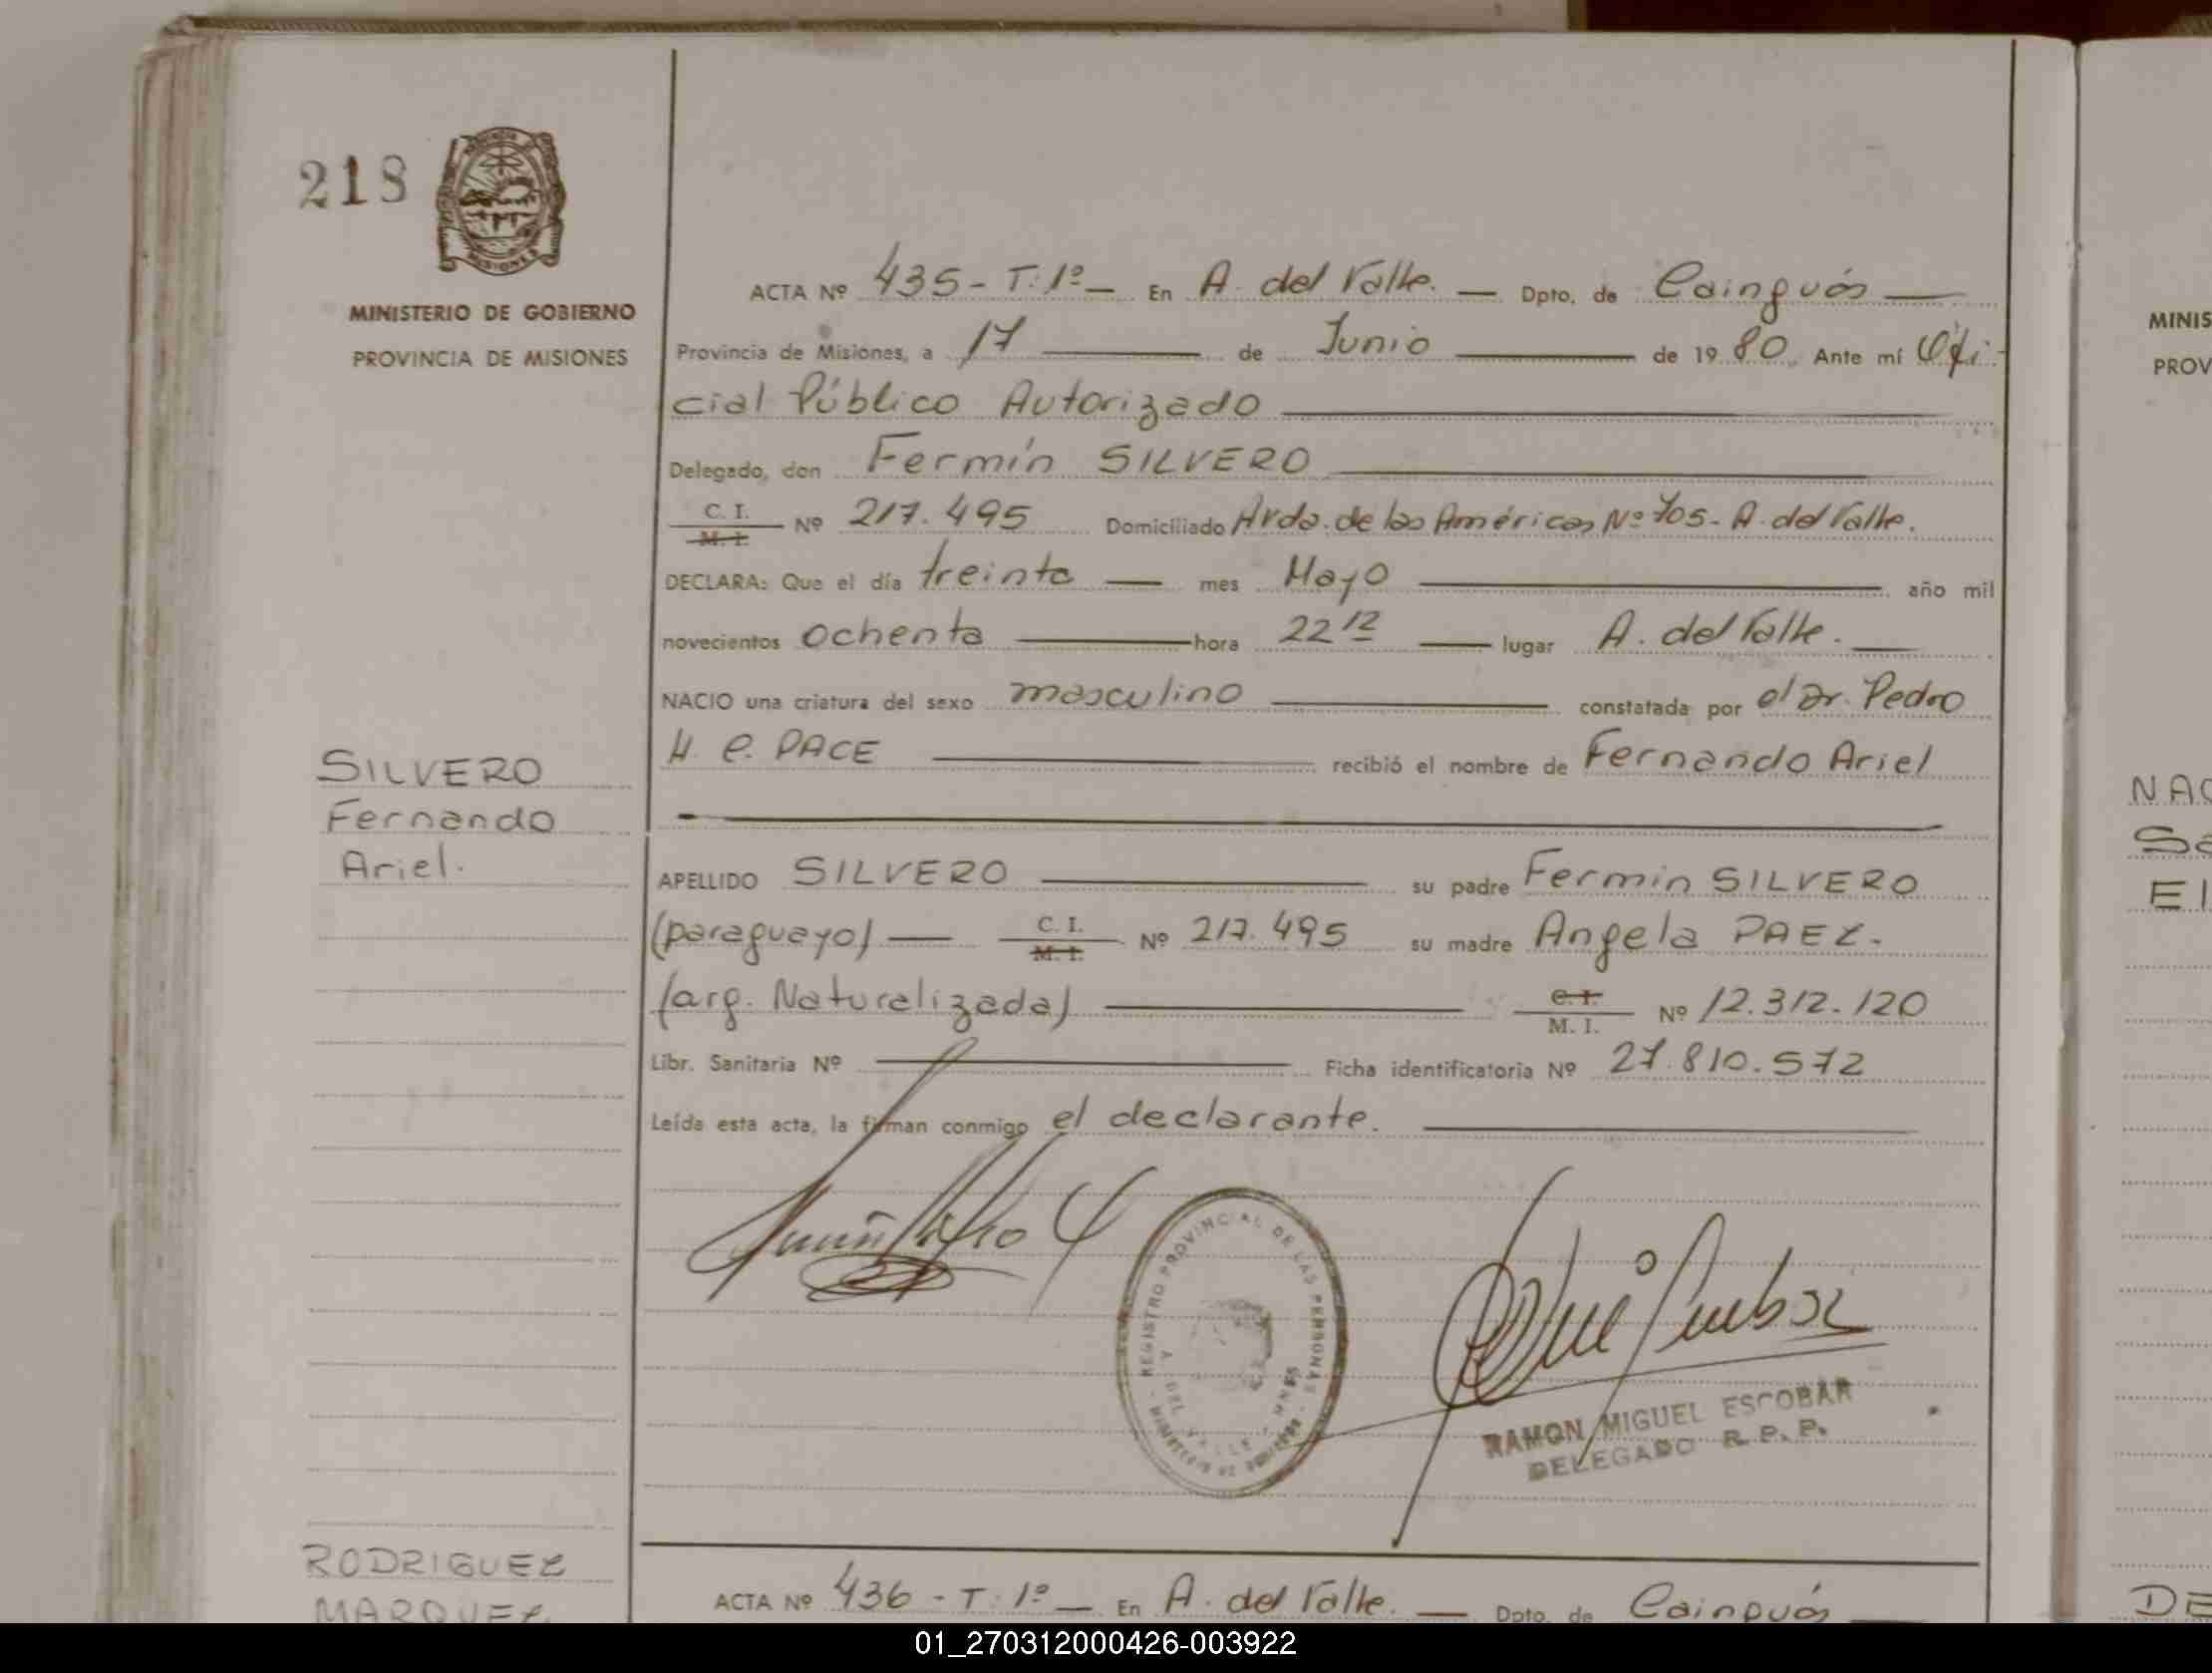 218
MISIONES
MINISTERIO DE GOBIERNO
PROVINCIA DE MISIONES
SILVERO
Fernando
Ariel.
ACTA Nº 435 - T: 1º — En A. del Valle. — Dpto. de Cainguás —
Provincia de Misiones, a 17 — de Junio — de 1980. Ante mí Ofi-
cial Público Autorizado —
Delegado, don Fermín SILVERO —
C. I. / M. I. Nº 217.495 Domiciliado Avda. de las Américas Nº 705 - A. del Valle.
DECLARA: Que el día treinta — mes Mayo — año mil
novecientos ochenta — hora 22 12 — lugar A. del Valle. —
NACIO una criatura del sexo masculino — constatada por el Dr. Pedro
H. C. PACE — recibió el nombre de Fernando Ariel
—
APELLIDO SILVERO — su padre Fermín SILVERO
(paraguayo) — C. I. / M. I. Nº 217.495 su madre Angela PAEZ.
(arg. Naturalizada) — C. I. / M. I. Nº 12.312.120
Libr. Sanitaria Nº — Ficha identificatoria Nº 27.810.572
Leída esta acta, la firman conmigo el declarante. —
REGISTRO PROVINCIAL DE LAS PERSONAS
MINISTERIO DE GOBIERNO
DEL VALLE - MNES
RAMON MIGUEL ESCOBAR
DELEGADO R. P. P.
RODRIGUEZ
MARQUEZ
ACTA Nº 436 - T: 1º — En A. del Valle. — Dpto. de Cainguás —
MINIS
PROV
NAC
Sa
El
DE
01_270312000426-003922